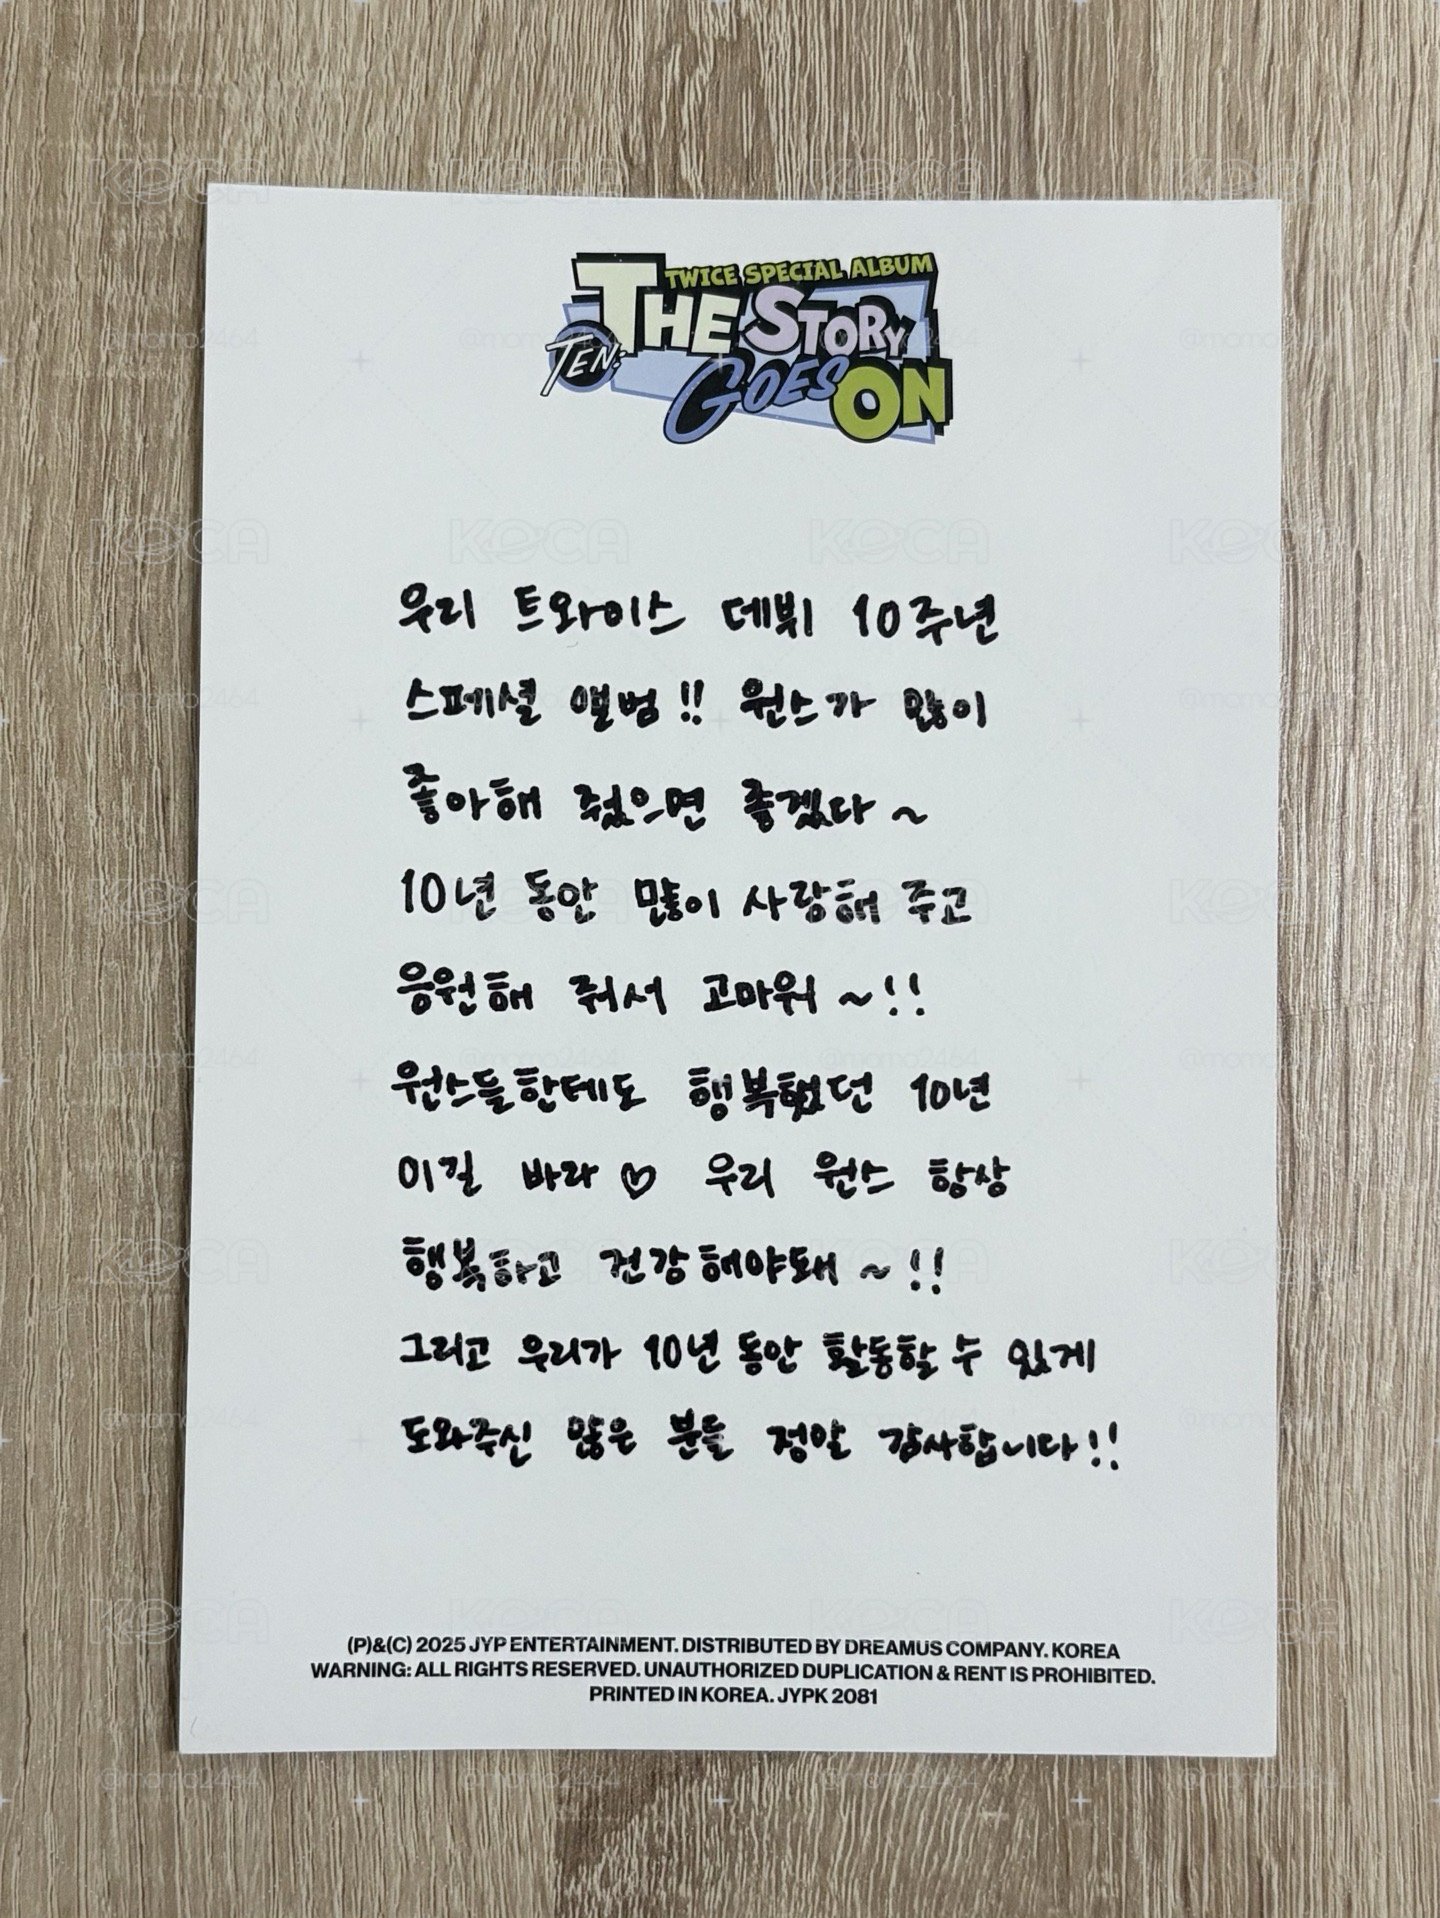 TWICE SPECIAL ALBUM
TEN: THE STORY
GOES ON
우리 트와이스 데뷔 10주년
스페셜 앨범!! 원스가 많이
좋아해 줬으면 좋겠다~
10년 동안 많이 사랑해 주고
응원해 줘서 고마워~!!
원스들한테도 행복했던 10년
이길 바라♡ 우리 원스 항상
행복하고 건강해야돼~!!
그리고 우리가 10년 동안 활동할 수 있게
도와주신 많은 분들 정말 감사합니다!!
(P)&(C) 2025 JYP ENTERTAINMENT. DISTRIBUTED BY DREAMUS COMPANY. KOREA
WARNING: ALL RIGHTS RESERVED. UNAUTHORIZED DUPLICATION & RENT IS PROHIBITED.
PRINTED IN KOREA. JYPK 2081
KOCA
@momo2464